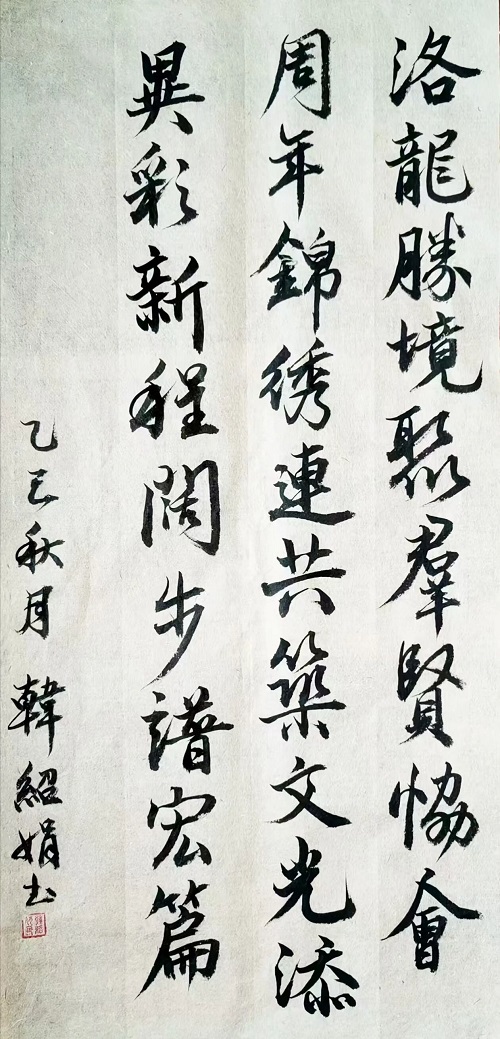 洛龍勝境聚群賢協會
周年錦綉連共築文光添
異彩新程闊步譜宏篇
乙巳秋月 韓紹娟书